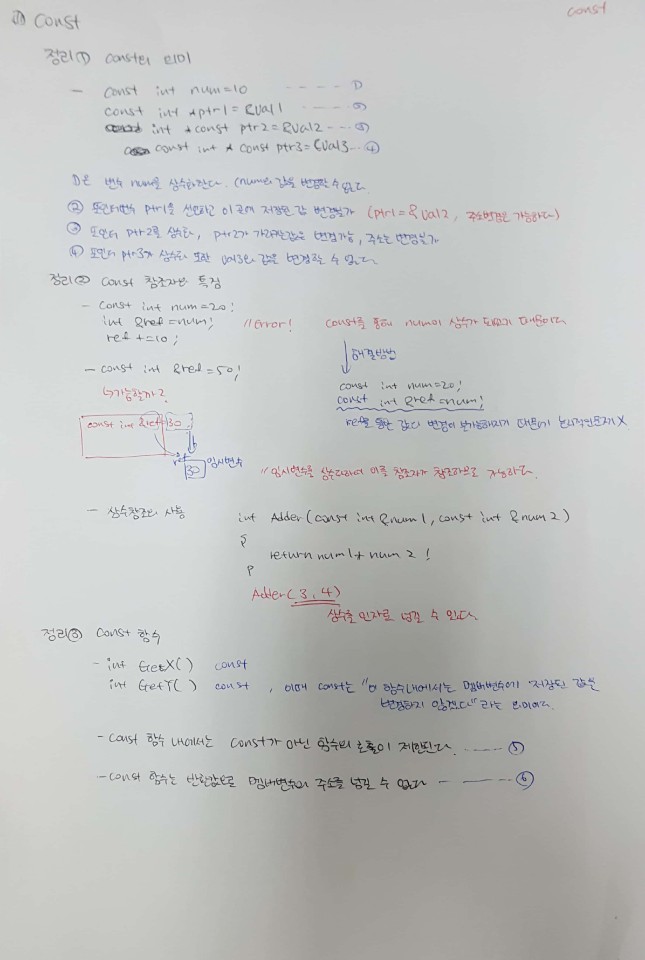 const
const
정리① const의 의미
- const int num=10 ---- ①
const int *ptr1 = &val1 ---- ②
int * const ptr2 = &val2 --- ③
const int * const ptr3 = &val3 -- ④
①은 변수 num을 상수화한다. (num의 값을 변경할 수 없다.
② 포인터변수 ptr1을 선언하고 이 곳에 저장된 값 변경불가 (ptr1 = & val2, 주소변경은 가능하다)
③ 포인터 ptr2를 상수화, ptr2가 가리키는값은 변경가능, 주소는 변경불가
④ 포인터 ptr3가 상수화 또한 val3의 값을 변경할 수 없다.
정리② const 참조자의 특징
- const int num=20;
int &ref=num; //Error! const를 통해 num이 상수가 되었기 때문이다
ref += 10;
해결방법
- const int &ref = 50;
↳가능할까?
const int num=20;
const int &ref=num;
ref를 통한 값의 변경이 불가능하기 때문에 논리적인문제X
const int &ref 30;
ref
30 임시변수 //임시변수를 상수화하여 이를 참조자가 참조하므로 가능하다.
- 상수참조의 사용 int Adder(const int &num1, const int &num2)
{
return num1 + num2;
}
Adder(3,4)
상수를 인자로 넘길 수 있다.
정리③ Const 함수
- int GetX() const
int GetY() const, 이때 const는 "이 함수내에서는 멤버변수에 저장된 값을
변경하지 않겠다"라는 의미이다.
- const 함수 내에서는 const가 아닌 함수의 호출이 제한된다. ---- ⑤
- const 함수는 반환값으로 멤버변수의 주소를 넘길 수 없다 ---- ⑥